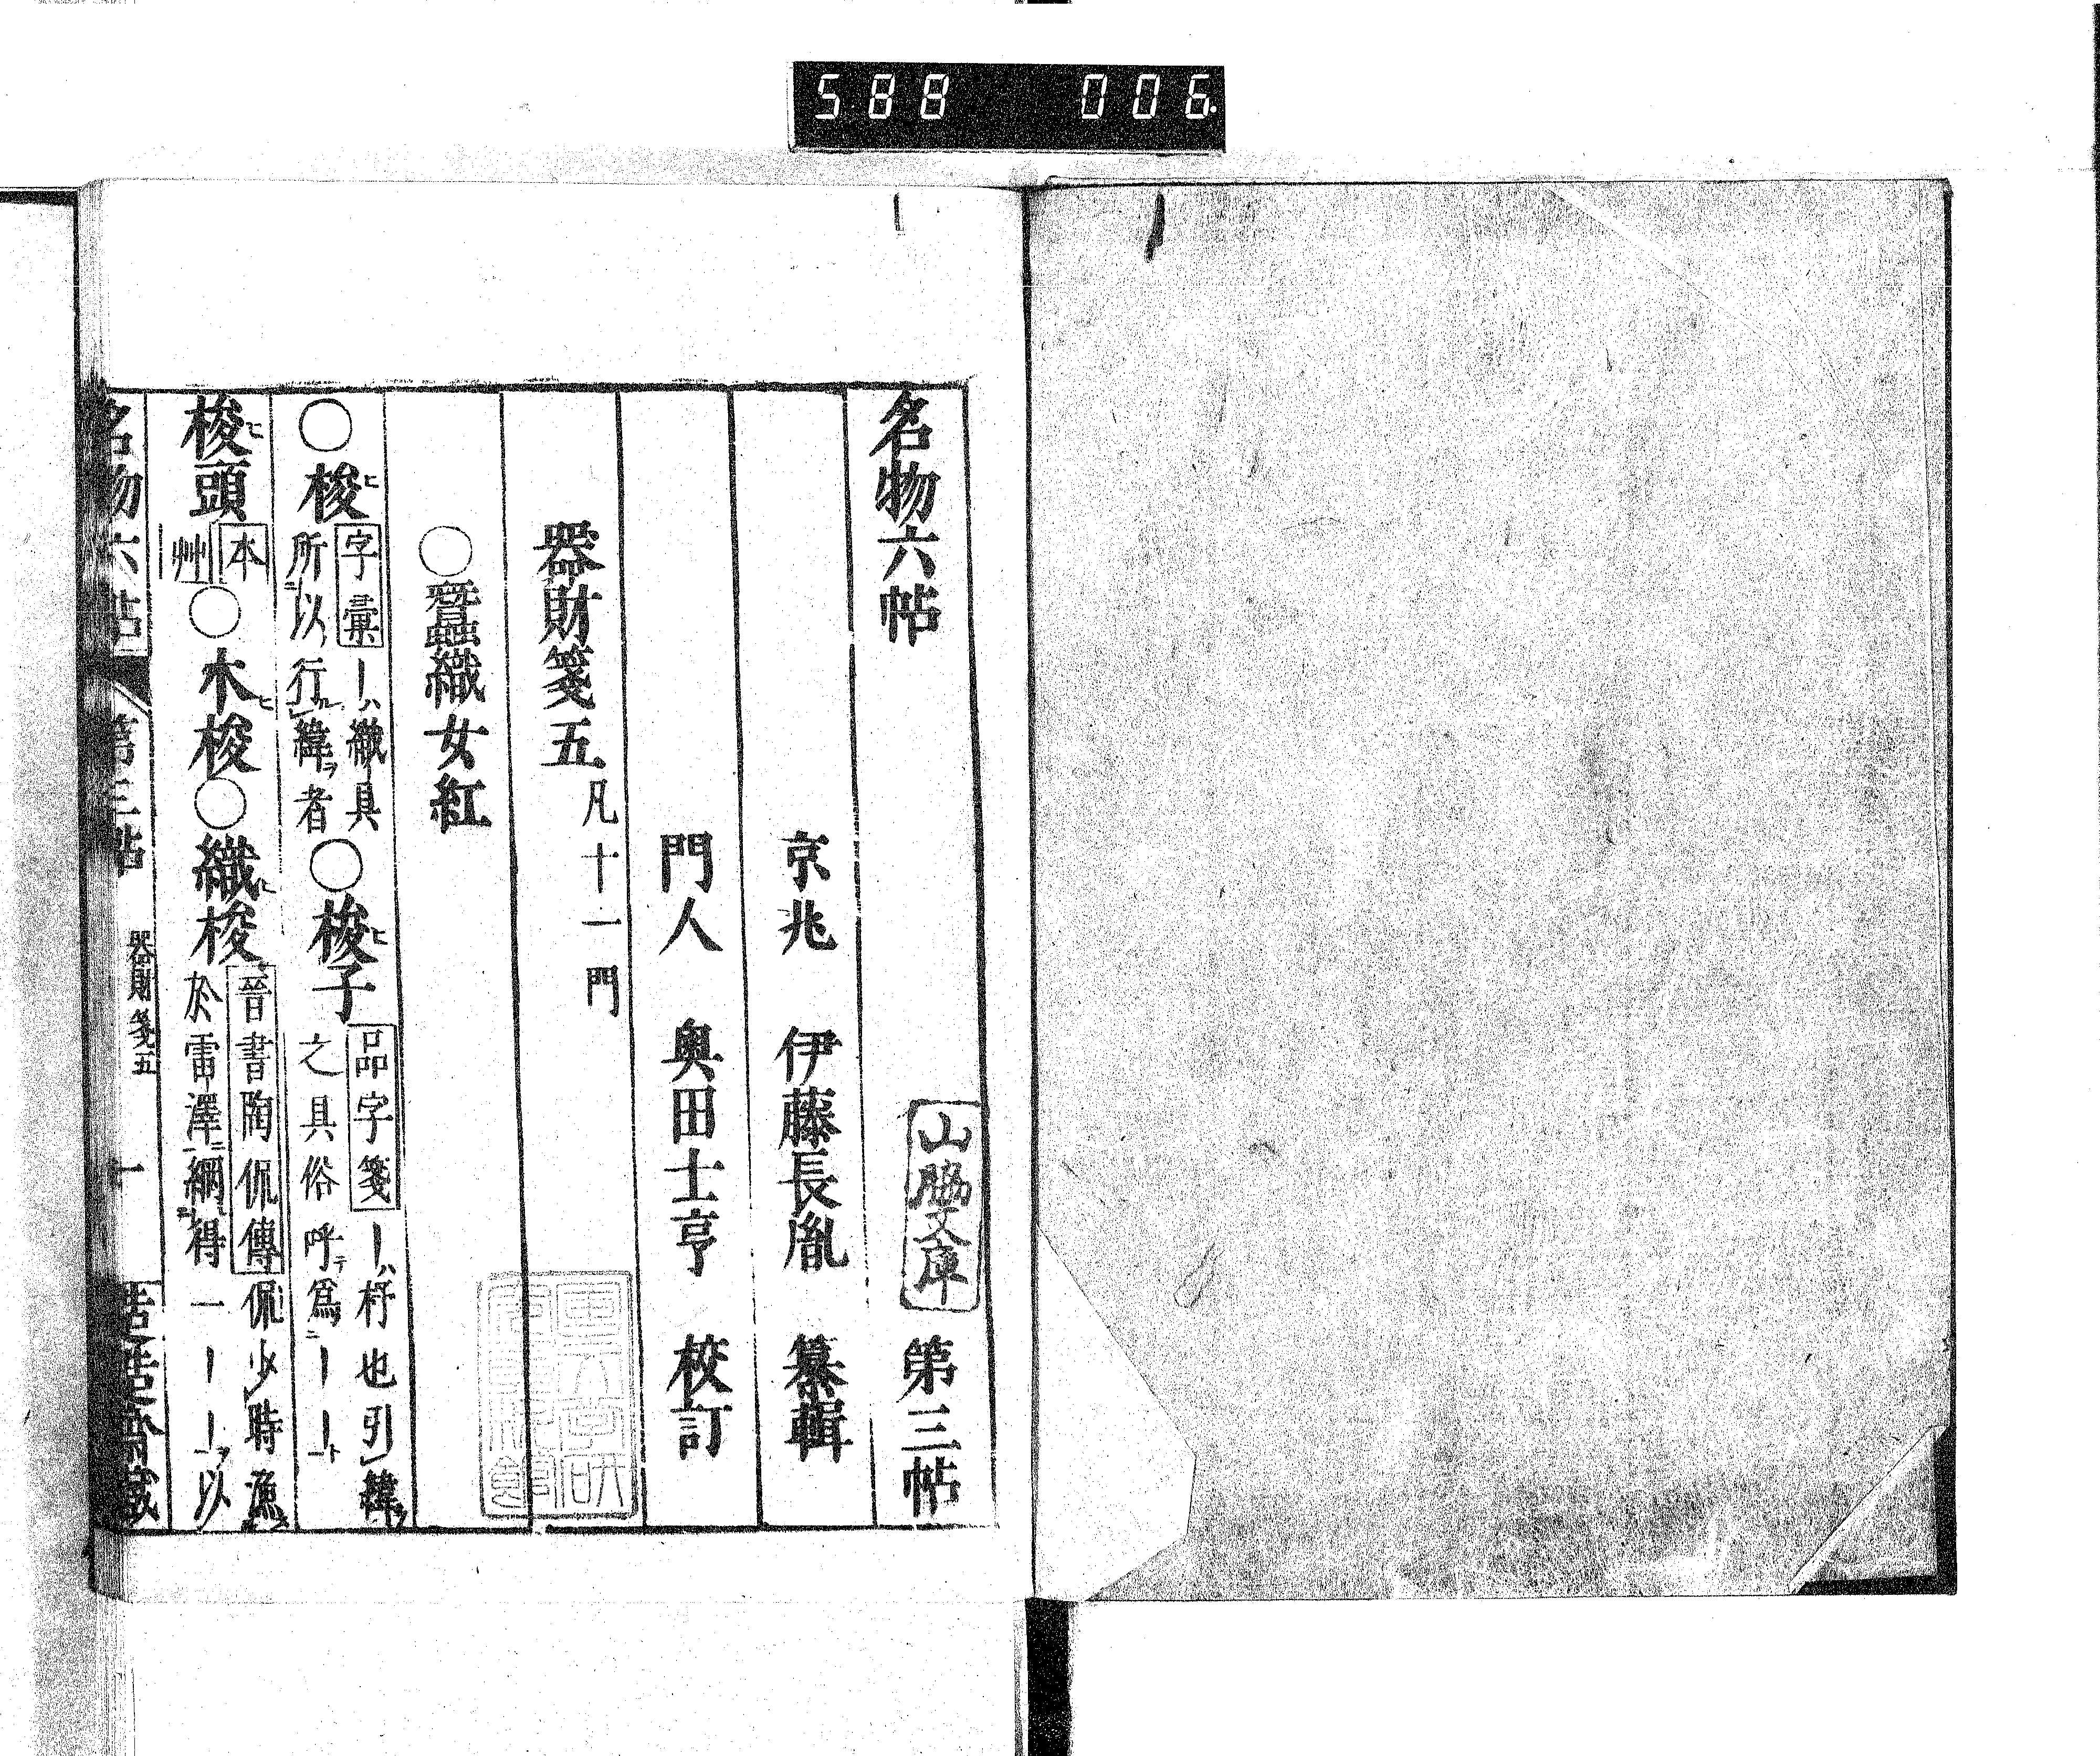 588 006.
名物六帖 第三帖
山脇文庫
京兆 伊藤長胤 纂輯
門人 奥田士亨 校訂
器財箋五 凡十一門
○蠶織女紅
○梭ヒ 字彙 ｜ハ織具
所以行緯ヲ者
○梭ヒ子 品字箋 ｜ハ杼也引緯ヲ
之具俗呼テ爲ニ｜｜ト
梭ヒ頭 本艸
○木ヒ梭
○織ヒ梭 晉書陶侃傳 侃少時漁
於雷澤ニ網得一｜｜ヲ以
名物六帖 第三帖 器財箋五 一